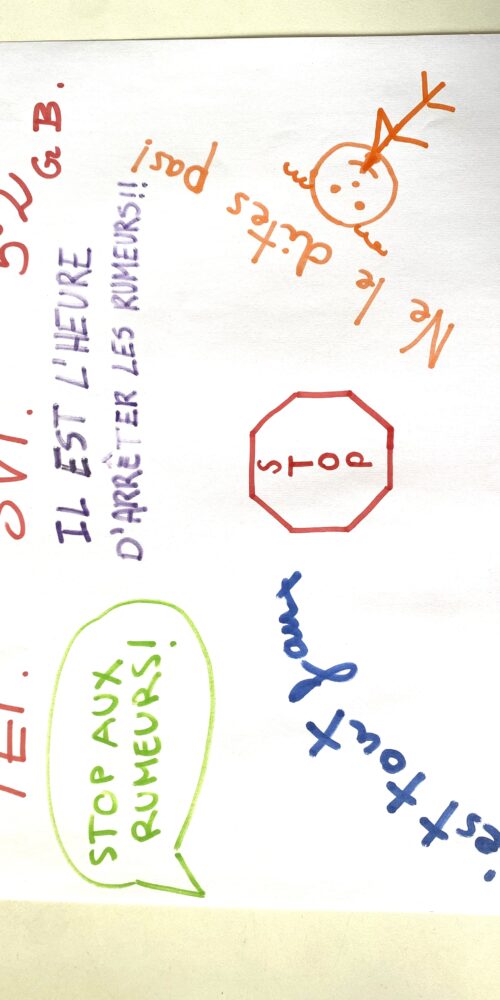 G B.
STOP AUX
RUMEURS!
IL EST L'HEURE
D'ARRÊTER LES RUMEURS!!
STOP
est tout faux
Ne le dites pas!